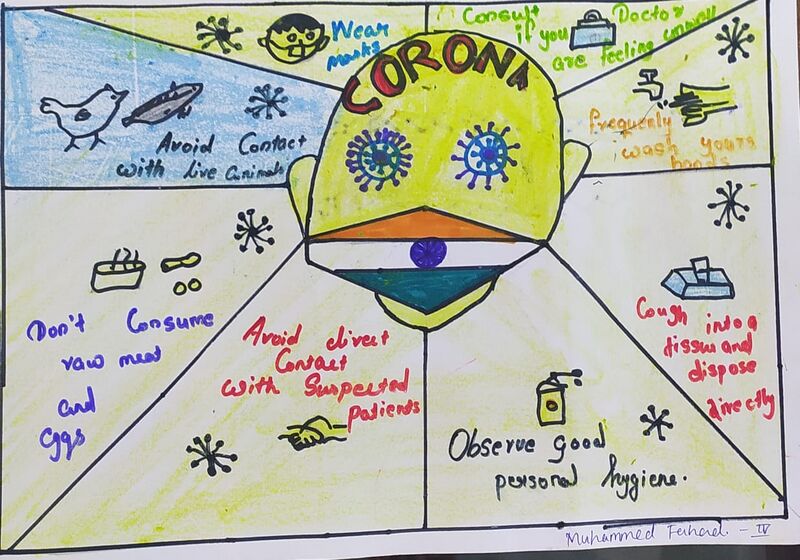 Wear
masks
Consult Doctor
if you
are feeling unwell
CORONA
Avoid Contact
with live animals
frequenly
wash yours
hands
Don't Consume
raw meat
and
eggs
Avoid direct
Contact
with Suspected
patients
Observe good
personal hygiene.
Cough into a
tissue and
dispose
directly
Muhammed Fahad - IV